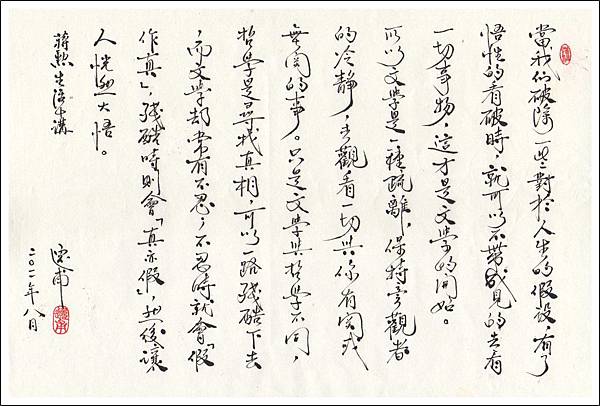 當我們破除一些對於人生的假設，有了
悟性的看破時，就可以不帶成見的去看
一切事物，這才是文學的開始。
所以文學是一種疏離，保持旁觀者
的冷靜，去觀看一切與你有關或
無關的事。只是文學與哲學不同，
哲學是尋找真相，可以一路殘酷下去
，而文學卻常有不忍，不忍時就會「假
作真」，殘酷時則會「真亦假」，然後讓
人恍然大悟。
蔣勳生活十講
二〇一一年八月